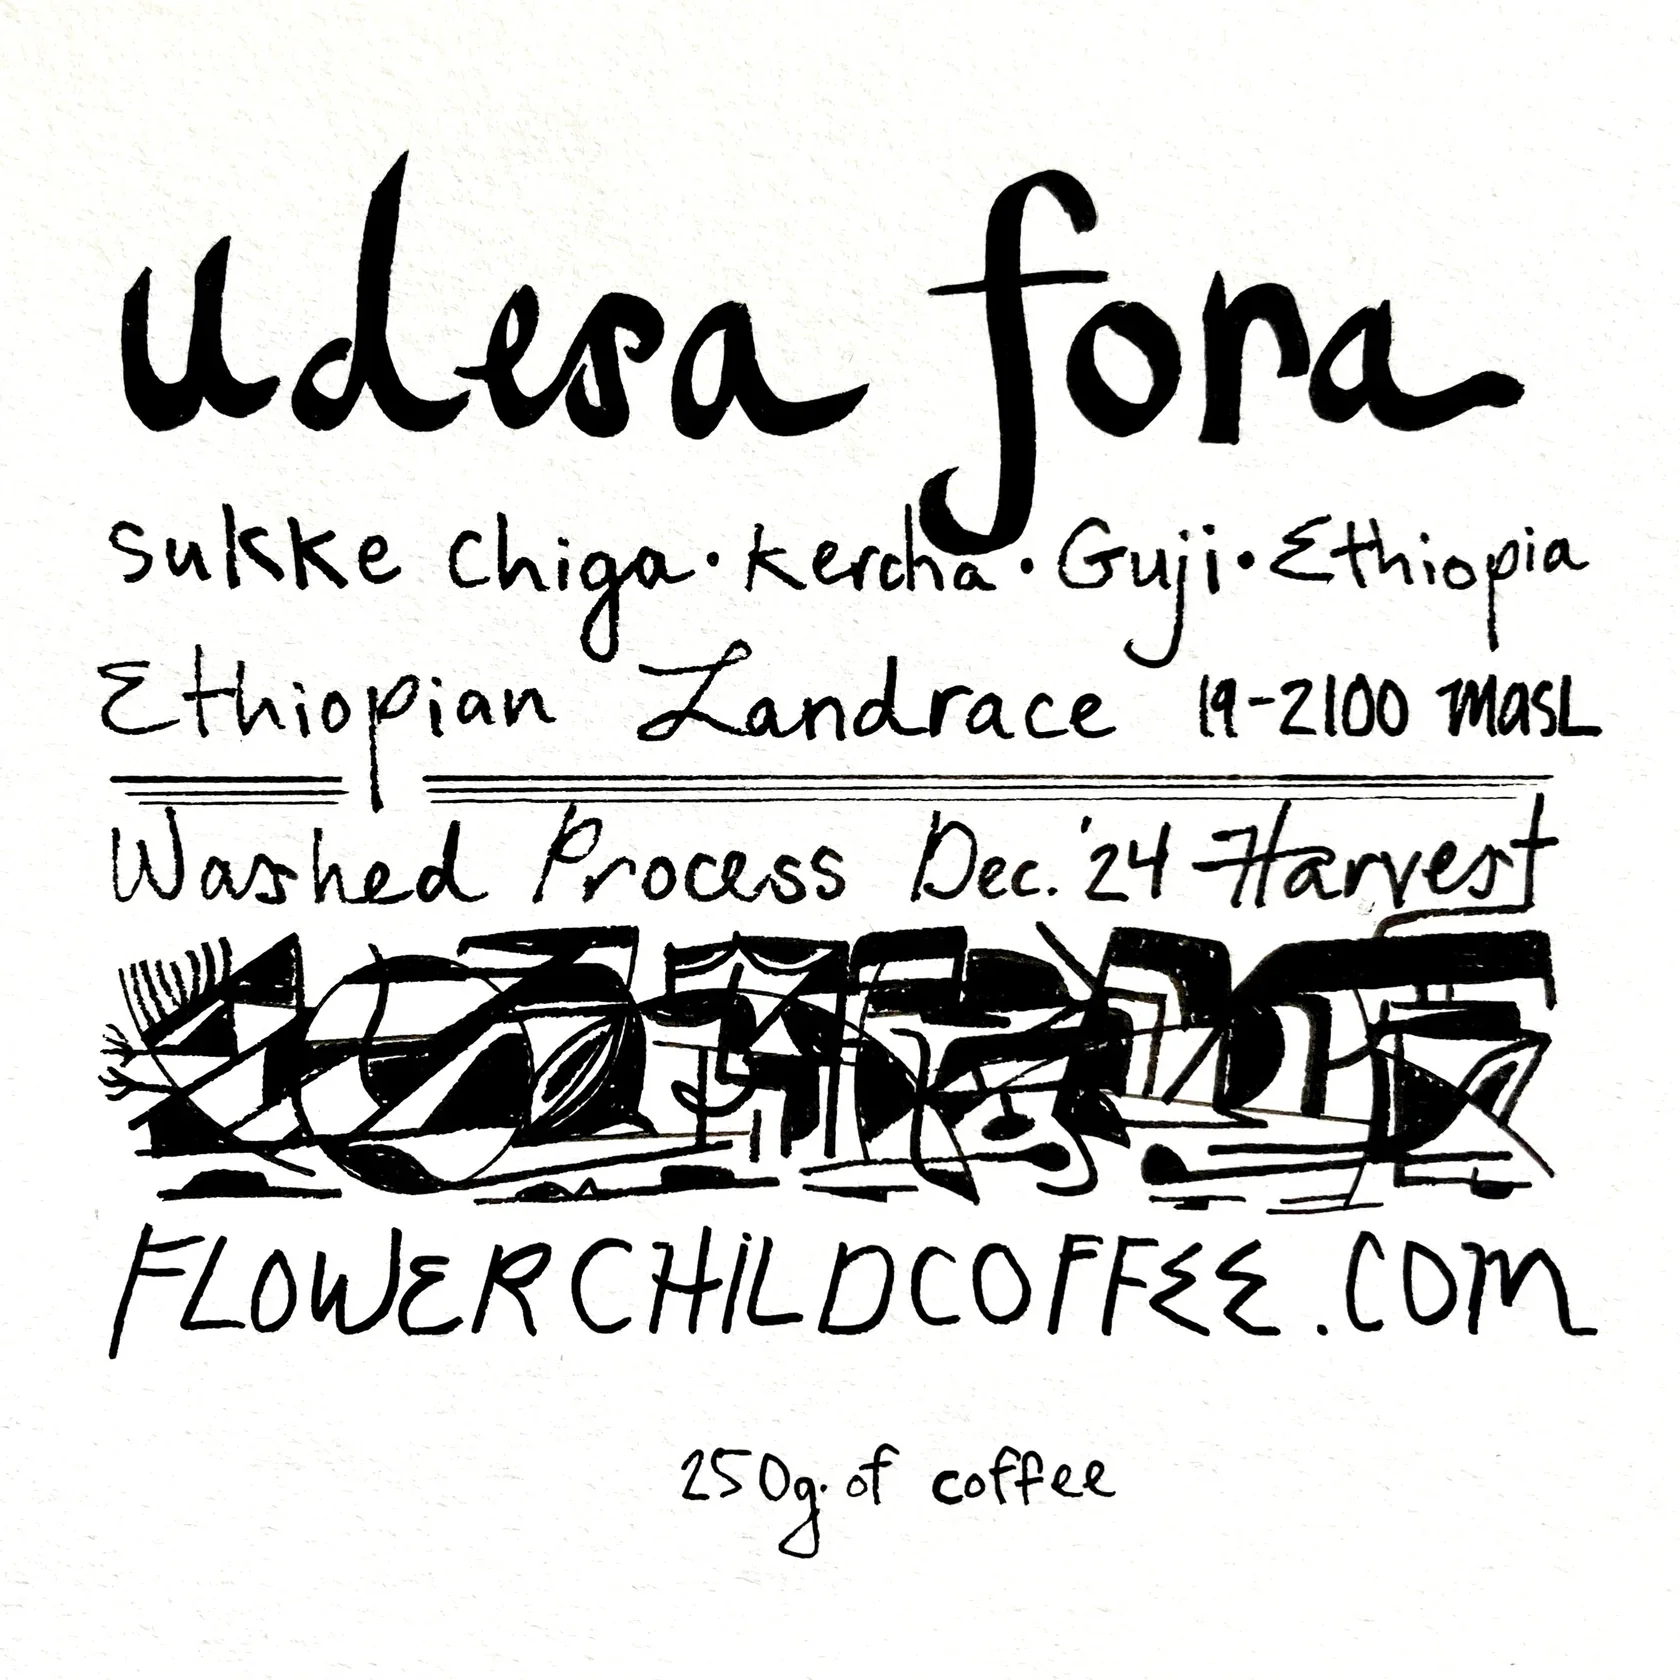 udesa fora
Sukke Chiga · Kercha · Guji · Ethiopia
Ethiopian Landrace 19-2100 masL
Washed Process Dec. '24 Harvest
FLOWERCHILDCOFFEE.COM
250g. of coffee